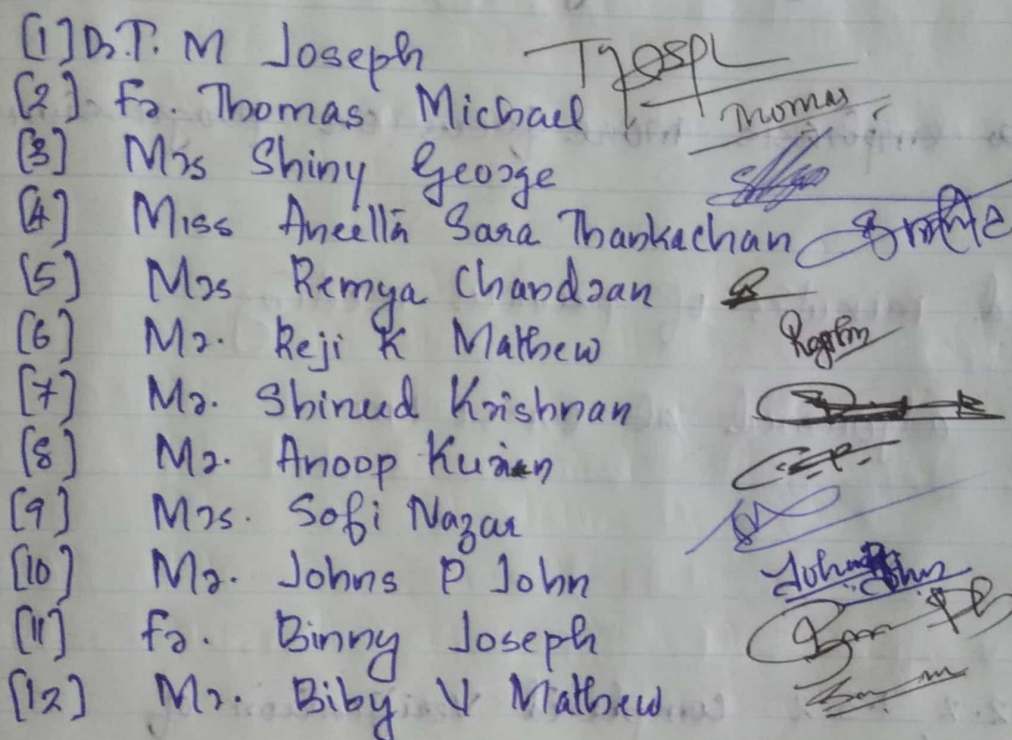 [1] Dr. T. M Joseph TJosepl
[2] Fr. Thomas Michael Thomas
[3] Mrs Shiny George
[4] Miss Aneella Sara Thankachan
[5] Mrs Remya Chandran
[6] Mr. Reji K Mathew
[7] Mr. Shinud Krishnan
[8] Mr. Anoop Kurian
[9] Mrs. Sofi Nazar
[10] Mr. Johns P John
[11] Fr. Binny Joseph
[12] Mr. Biby V Mathew